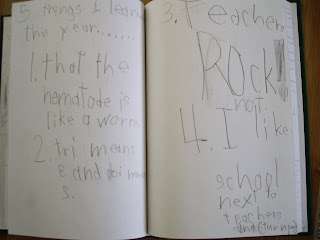 5 things I learn
this year.......
1. that the
nematode is
like a worm.
2. tri means
and
s.
3. Teachers
ROCK!
not
4. I like
school
next to
teachers
and